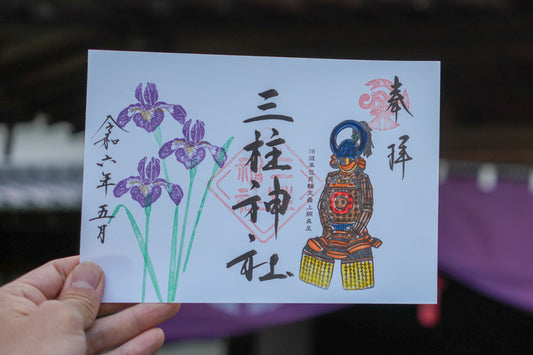 奉拝
三柱神社
令和六年五月